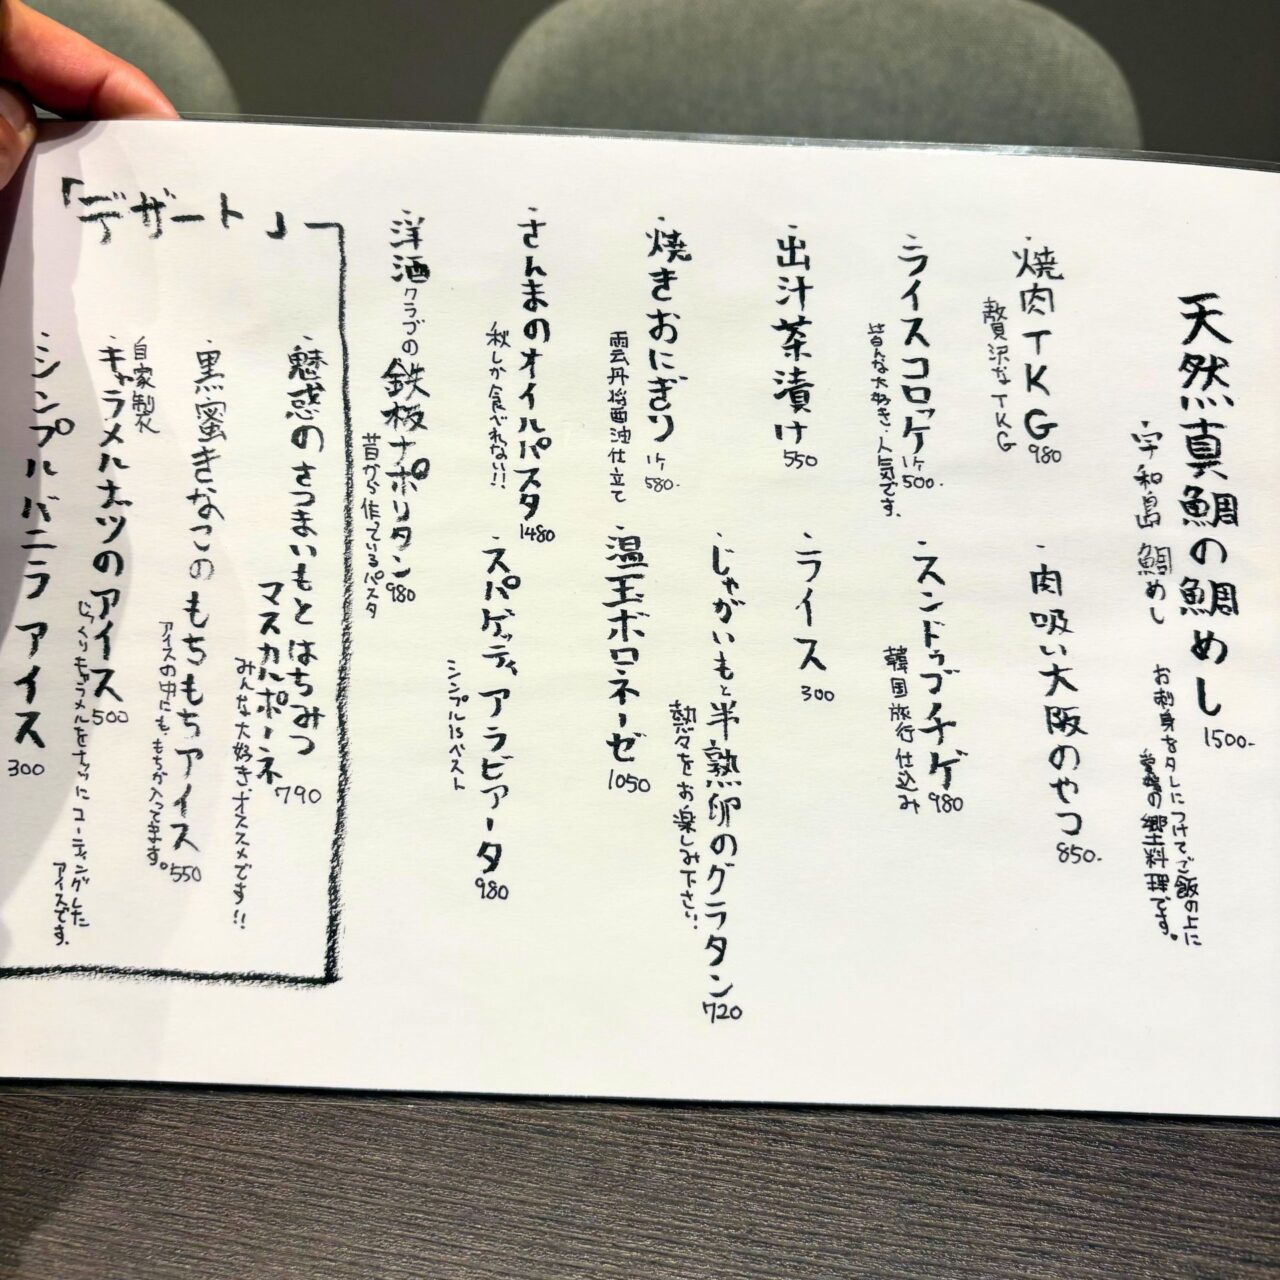 天然真鯛の鯛めし 1500-
宇和島 鯛めし
お刺身をタレにつけてご飯の上に
愛媛の郷土料理です。
・焼肉TKG 980
贅沢なTKG
・肉吸い大阪のやつ 850-
・ライスコロッケ 1ケ 500-
皆んな大好き・人気です。
・スンドゥブチゲ 980
韓国旅行仕込み
・出汁茶漬け 550
・ライス 300
・焼きおにぎり 1ケ 580-
雲丹醤油仕立て
・じゃがいもと半熟卵のグラタン 720
熱々をお楽しみ下さい。
・温玉ボロネーゼ 1050
・さんまのオイルパスタ 1480
秋しか食べれない!!
・スパゲッティ アラビアータ 980
シンプルisベスト
・洋酒クラブの鉄板ナポリタン 980
昔から作っているパスタ
「デザート」
・魅惑のさつまいもとはちみつ
マスカルポーネ 790
みんな大好き、オススメです!!
・黒蜜きなこのもちもちアイス 550
アイスの中にも、もちが入ってます。
・自家製
キャラメルナッツのアイス 500
じっくりキャラメルをナッツにコーティングした
アイスです。
・シンプルバニラアイス 300